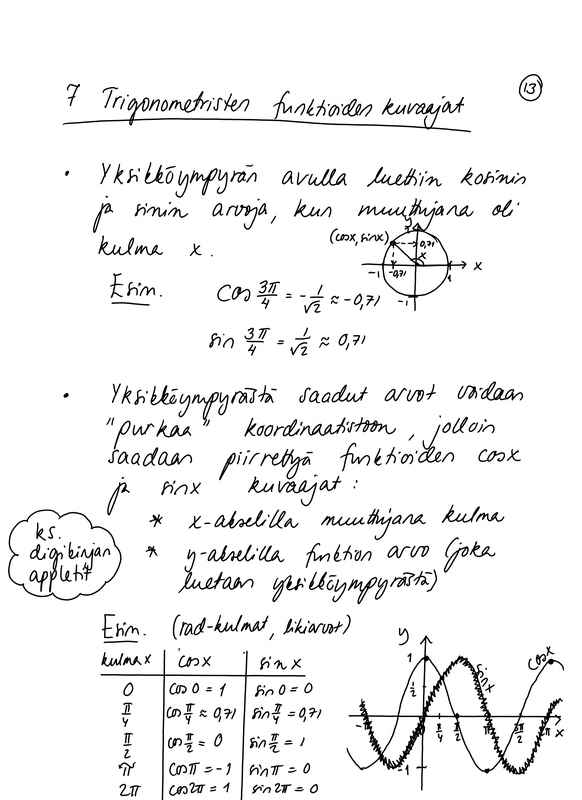 13
7 Trigonometristen funktioiden kuvaajat
• Yksikköympyrän avulla luettiin kosinin
ja sinin arvoja, kun muuttujana oli
kulma x.
y
1
(cosx, sinx)
0,71
x
-1
-0,71
1
x
-1
Esim.
cos 3π/4 = -1/√2 ≈ -0,71
sin 3π/4 = 1/√2 ≈ 0,71
• Yksikköympyrästä saadut arvot voidaan
"purkaa" koordinaatistoon, jolloin
saadaan piirrettyä funktioiden cosx
ja sinx kuvaajat:
* x-akselilla muuttujana kulma
* y-akselilla funktion arvo (joka
luetaan yksikköympyrästä)
ks.
digikirjan
appletit
Esim. (rad-kulmat, likiarvot)
kulma x | cosx | sin x
0 | cos 0 = 1 | sin 0 = 0
π/4 | cos π/4 ≈ 0,71 | sin π/4 = 0,71
π/2 | cos π/2 = 0 | sin π/2 = 1
π | cosπ = -1 | sinπ = 0
2π | cos2π = 1 | sin 2π = 0
y
1
1/2
sinx
cosx
-π
π/4
π/2
π
3π/2
2π
x
-1